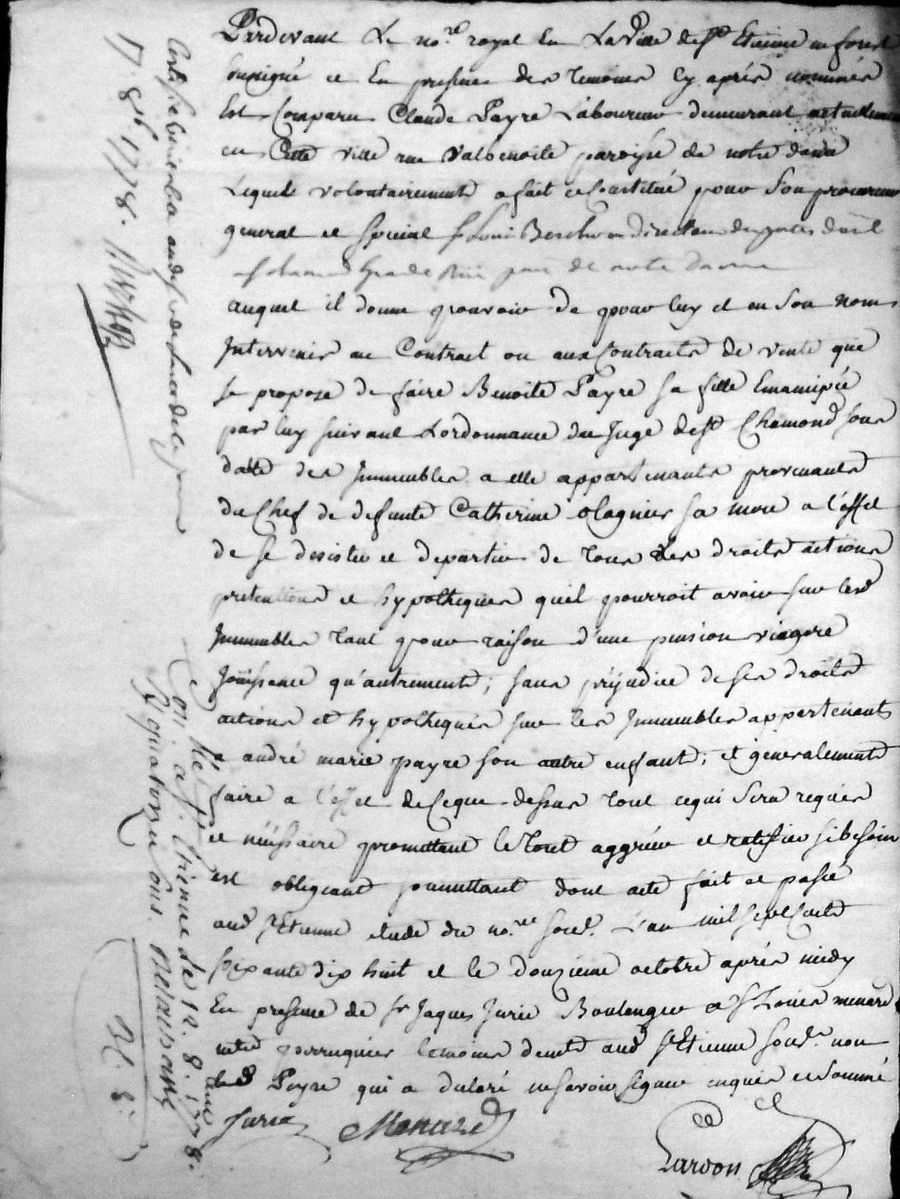 Pardevant Le no.re royal En La Ville de st Etienne en forest
sousigné et En presence des temoins Cy après nommés
Est Comparu Claude Payre Laboureur demeurant actuellement
en Cette ville rue Valbenoite paroisse de notre dame
Lequel volontairement a fait et Constitué pour Son procureur
general et special sr Louis directeur des postes
st Chamond Grande Rue parr de notre Dame
auquel il donne pouvoir de pour luy et en Son nom
Intervenir au Contrat ou aux Contracts de vente que
se propose de faire Benoite Payre sa fille Emancipée
par luy suivant Lordonnance du Juge de st Chamond sous
date des Immeubles a elle appartenants provenants
du Chef de defunte Catherine sa mere a l'effet
de se desister et departir de tous les droits actions
pretentions et hypotheques quil pourroit avoir sur lesd
Immeubles tant pour raison d'une pension viagere
Jouissance qu'autrement ; sans prejudice de ses droits
actions et hypotheques sur les Immeubles appartenants
a andré marie payre son autre enfant ; et generalement
faire a l'effet de ce que dessus tout ce qui sera requis
et necessaire promettant le tout aggréer et ratiffier si besoin
est obligeant soumettant dont acte fait et passé
aud st Etienne etude du no.re sous.é L'an mil sept Cents
soixante dix huit et le douzieme octobre après midy
En presence de sr Jaques Jurie Boulanger et sr Louis menard
mtre perruquier temoins demts aud st Etienne sous.és non
led Payre qui a declaré ne savoir signer enquis et sommé
Jurie Menard
Lardon
17. 8bre 1778.
Con.llé à st Etienne le 12. 8. bre 1778.
R. quatorze sols.